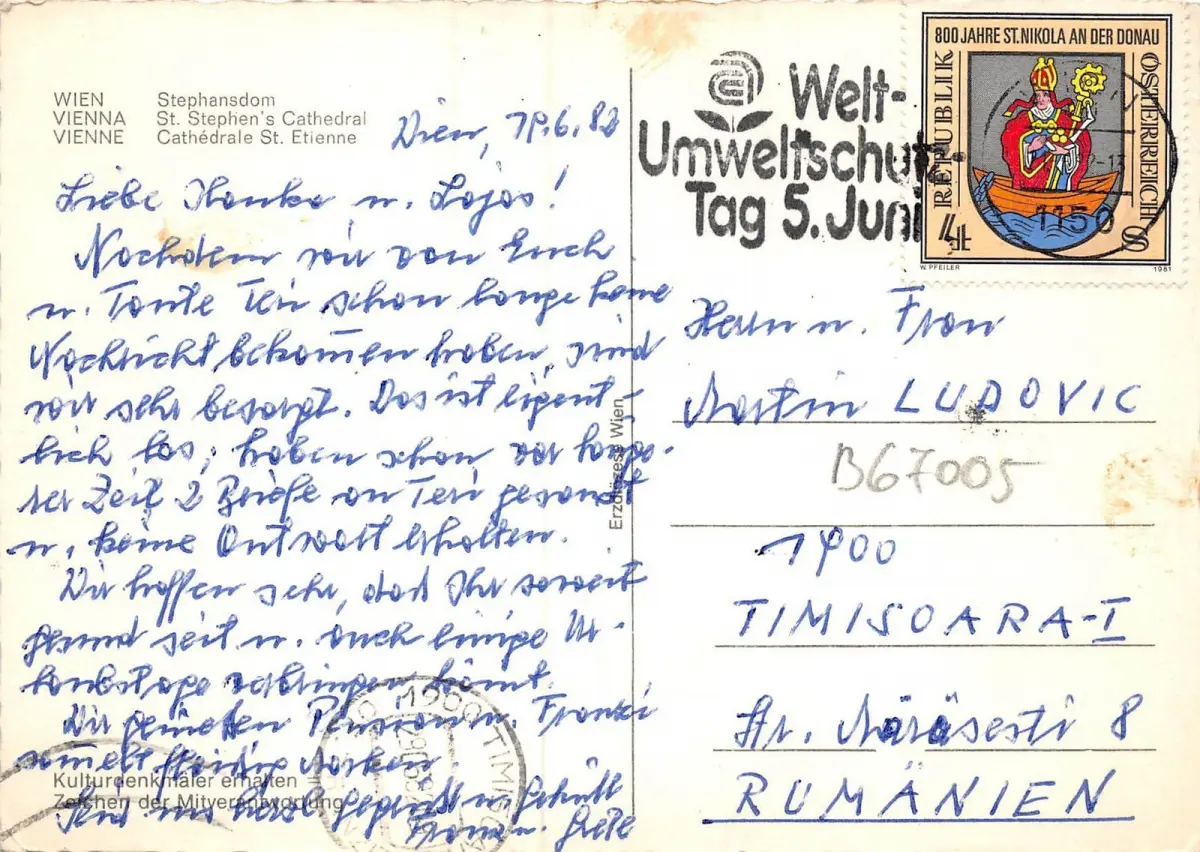 WIEN Stephansdom
VIENNA St. Stephen's Cathedral
VIENNE Cathédrale St. Etienne
Wien, 19.6.82
Liebe Hanka u. Lajos!
Nachdem wir von Euch
u. Tante Teri schon lange keine
Nachricht bekommen haben, sind
wir sehr besorgt. Was ist eigent-
lich los, haben schon vor länge-
rer Zeit 2 Briefe an Teri gesandt
u. keine Antwort erhalten.
Wir hoffen sehr, daß Ihr soweit
gesund seit u. auch einige Ur-
laubstage verbringen könnt.
Wir genießen Pension u. Franzi
sammelt fleißig Marken
Seid uns herzl. gegrüßt u. geküßt
Franzi u. Grete
Kulturdenkmäler erhalten
Zeichen der Mitverantwortung
Erzdiözese Wien
Welt-
Umweltschutz-
Tag 5. Juni
1150
800 JAHRE ST. NIKOLA AN DER DONAU
REPUBLIK
ÖSTERREICH
4 S
W. PFEILER 1981
Herrn u. Frau
Martin LUDOVIC
B67005
1900
TIMISOARA-I
Str. Mărăsesti 8
RUMÄNIEN
1900 TIMIS